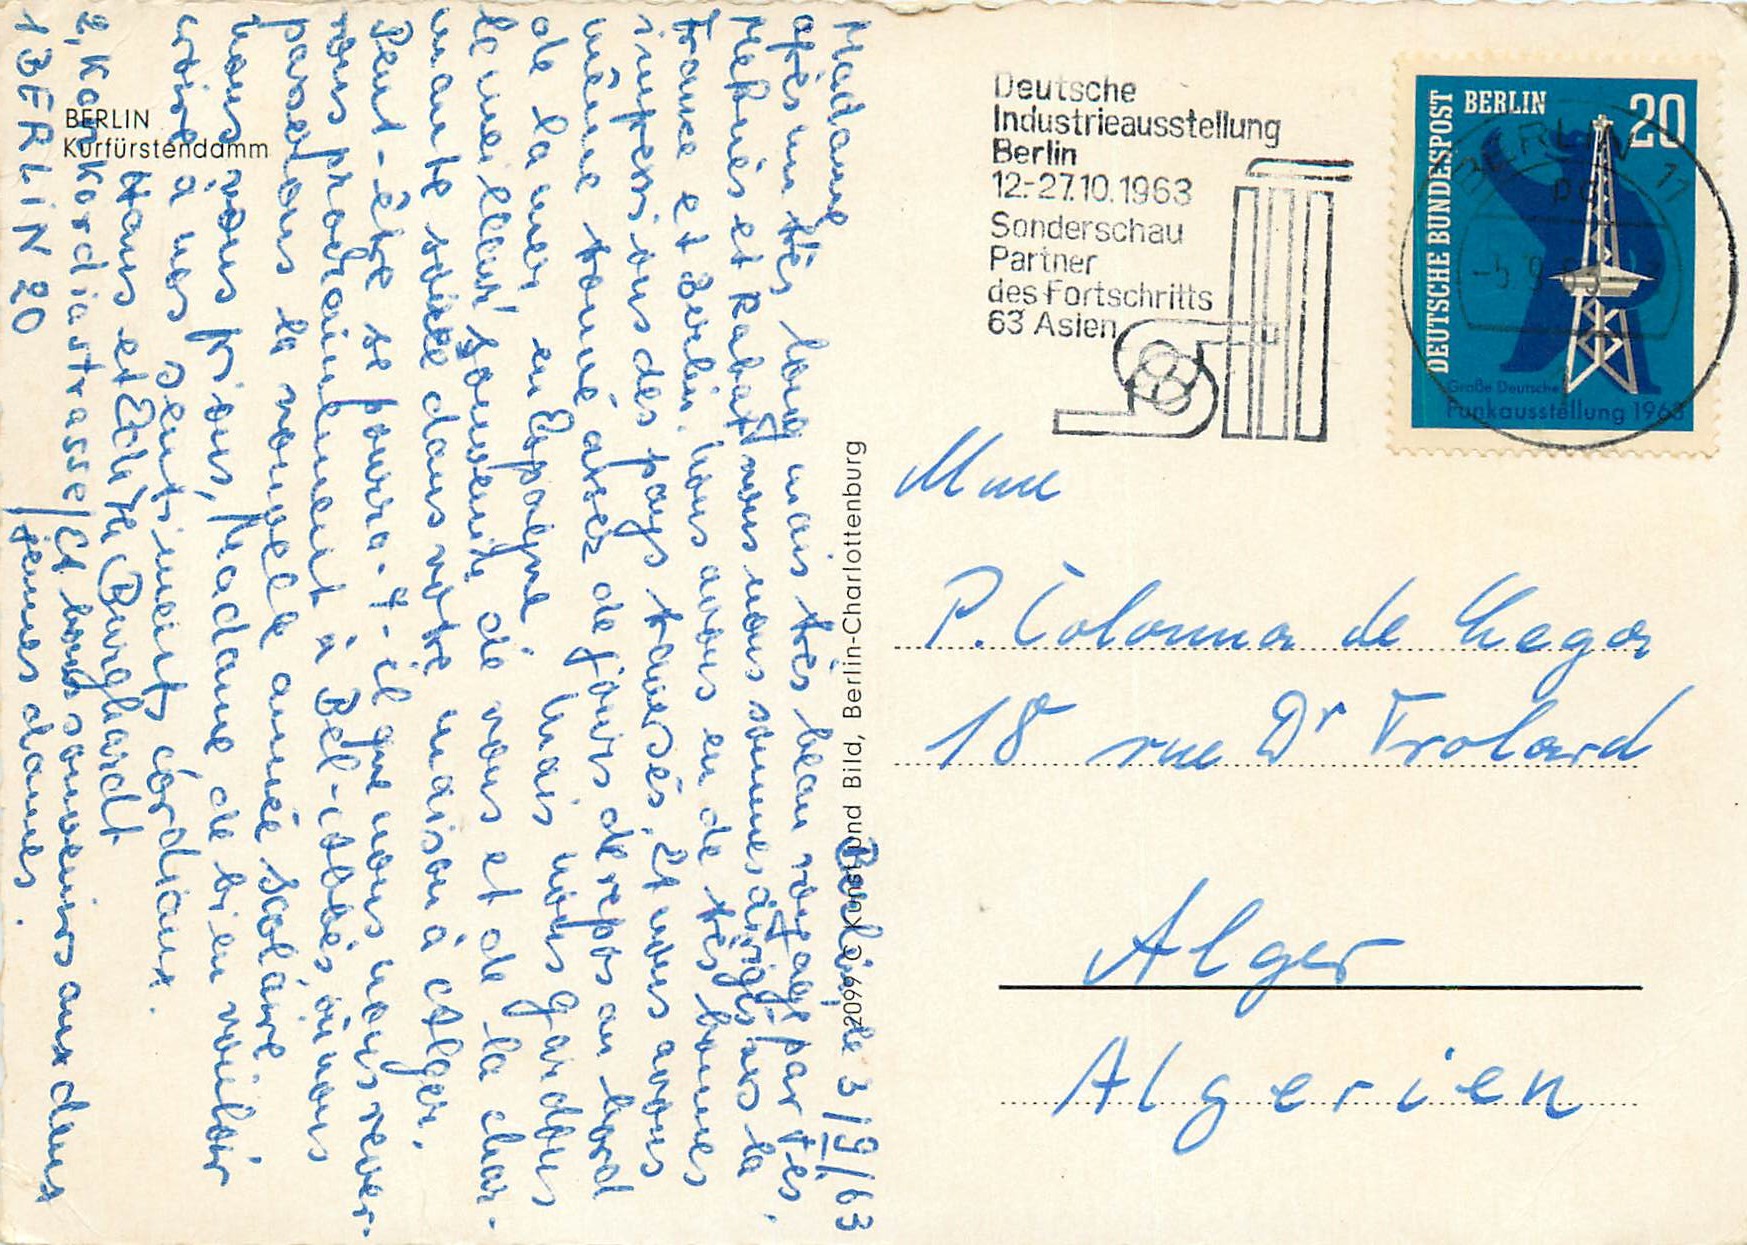 BERLIN
Kurfürstendamm
Berlin, le 3/9/63
Madame,
après un très long mais très beau voyage par Fès,
Meknès et Rabat nous nous sommes dirigés vers la
France et Berlin. Nous avons eu de très bonnes
impressions des pays traversés. Et nous avons
même trouvé assez de jours de repos au bord
de la mer en Espagne. Mais nous gardons
le meilleur souvenir de vous et de la char-
mante soirée dans votre maison à Alger.
Peut-être se pourra-t-il que nous nous rever-
rons prochainement à Bel-Abbès, où nous
passerons la nouvelle année scolaire.
Nous vous prions, Madame, de bien vouloir
croire à nos sentiments cordiaux.
Hans et Edith Burghardt
2, Konkordiastrasse / Et bons souvenirs aux deux
1 BERLIN 20 / jeunes dames.
2099 © Kunst und Bild, Berlin-Charlottenburg
Deutsche
Industrieausstellung
Berlin
12.-27.10.1963
Sonderschau
Partner
des Fortschritts
63 Asien
DEUTSCHE BUNDESPOST
BERLIN
20
Große Deutsche
Funkausstellung 1963
BERLIN 11
-5.9.63
Mme
P. Colonna de Lega
18 rue Dr Trolard
Alger
Algerien